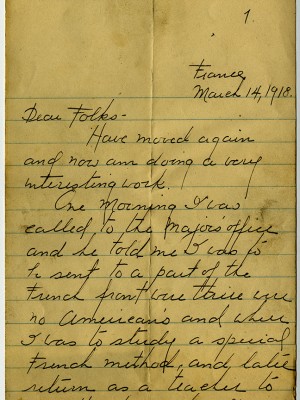 1.
France,
March 14, 1918.
Dear Folks-
Have moved again
and now am doing a very
interesting work.
One Morning I was
called to the Major's office
and he told me I was to
be sent to a part of the
French front were there were
no Americans and where
I was to study a special
French method, and later
return as a teacher to